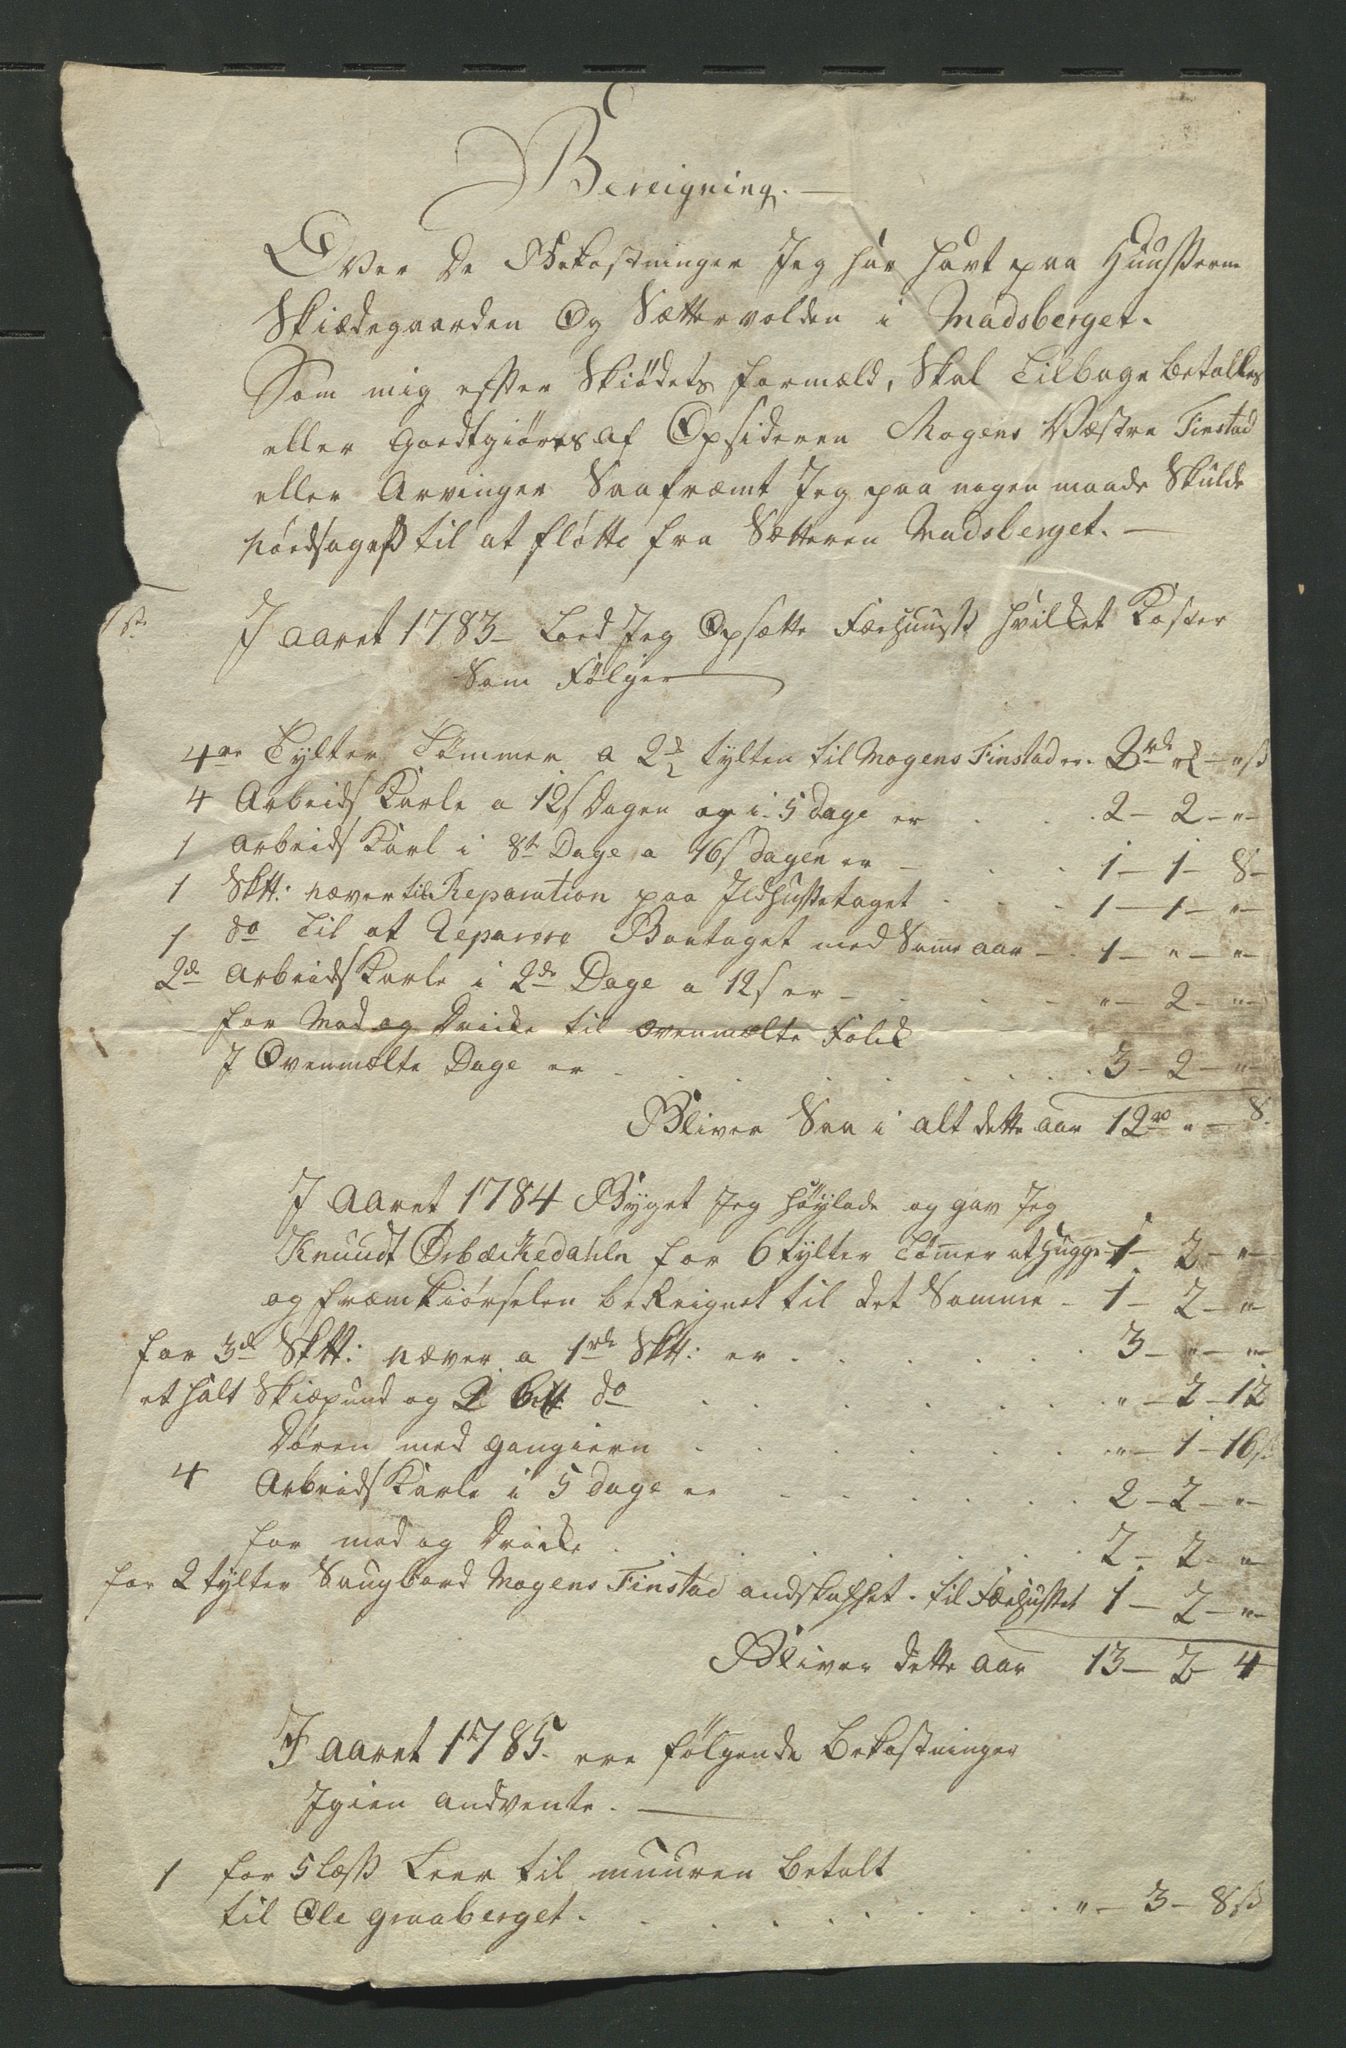 Bereigning. —
Over De Bekostninger Jeg har havt paa Huusserne
Skiædegaarden Og Sættervolden i Madsberget.
Som mig efter Skiødets formæld, Skal Tilbage betalles
eller Goedtgiøres af Opsideren Mogens Væstre Finstad
eller Arvinger Saafræmt Jeg paa nogen maade Skulde
nødsages til at fløtte fra Sætteren Madsberget. —
1st I aaret 1783 – Loed Jeg Opsætte Fæehuuset hvilket Koster
Som Følger
4re Tylter Tømmer a 2d tylten til Mogens Finstad er. 2rd – „ – „ ß
4 Arbeids Karle a 12s Dagen og i 5 dage er . . . 2 – 2 – „ –
1 Arbeids Karl i 8te Dage a 16s dagen er – . . . 1 – 1 – 8 –
1 Sktt: næver til Reparation paa Ildhussetaget . . . 1 – 1 – „ –
1 do Til at Reparere Boetaget med Same aar – . 1 – „ – „ –
2de Arbeids Karle i 2de Dage a 12s er – . . . „ – 2 – „ –
for Mad og Dricke til ovenmælte Folck
I Ovenmælte Dage er . . . . . 3 – 2 – „ –
Bliver Saa i alt dette aar 12rd „ – 8.
I Aaret 1784 Byget Jeg Høylade og gav Jeg
Knuudt Ørbæckedahln for 6 tylter Tømer at Hugge – 1 – 2 – „ –
og fræmkiørselen beReignet til det Samme – 1 – 2 – „
for 3de Sktt: næver a 1rd Sktt: er . . . . . 3 – „ – „ –
et halt Skiæpund og 2 do . . . . . „ – 2 – 12
Døren med gangiern . . . . . „ – 1 – 16ß
4 Arbeids Karle i 5 dage er . . . . . 2 – 2 – „ –
for mad og Dricke . . . . . 2 – 2 – „ –
for 2 tylter Saugbord Mogens Finstad andskaffet . til Fæehusset 1 – 2 – „ –
Bliver dette aar 13 – 2 – 4
I aaret 1785. ere følgende Bekostninger
Igien andvente. —
1 for 5 læss Leer til muuren betalt
til Ole graaberget. . . . . . „ – 3 – 8ß